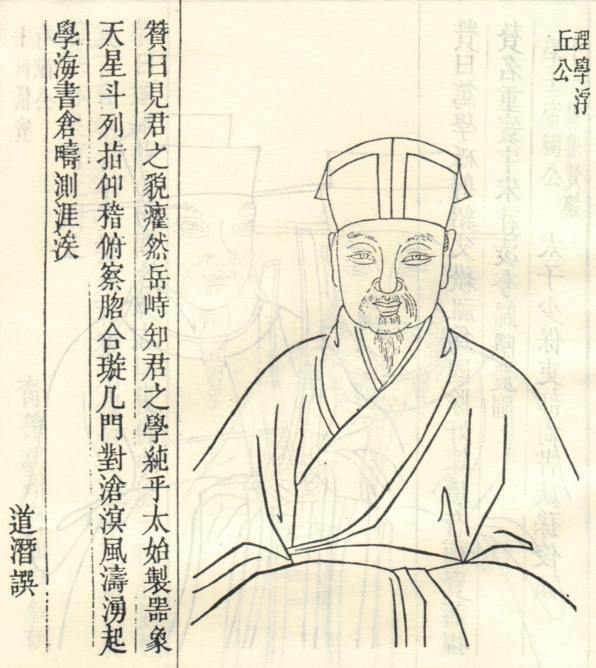 理學浮
丘公
贊曰見君之貌癯然岳峙知君之學純乎太始製器象
天星斗列指仰稽俯察脗合璇几門對滄溟風濤湧起
學海書倉疇測涯涘
道潛譔